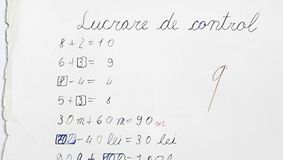 Lucrare de control
8 + 2 = 10
6 + 3 = 9
8 - 4 = 4
5 + 3 = 8
30 m + 60 m = 90 m
- 40 lei = 30 lei
9